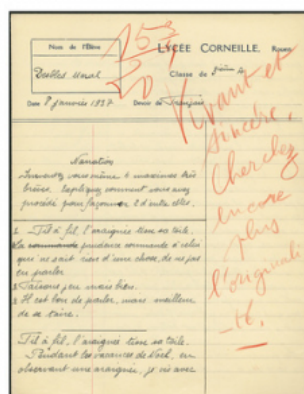 Nom de l'Élève
15 3/4
20
LYCÉE CORNEILLE, Rouen
Classe de
Date 8 Janvier 1937 Devoir de Français
Vivant et
sincère.
Cherchez
encore
plus
l'originali
-té.
Narration
vous même 4 maximes très
brèves. Expliquez comment vous avez
procédé pour façonner 2 d'entre elles.
1 - Fil à fil, l'araignée tisse sa toile.
La prudence commande à celui
qui ne sait rien d'une chose, de ne pas
en parler
Faisons peu mais bien.
Il est bon de parler, mais meilleur
de se taire.
Fil à fil, l'araignée tisse sa toile.
Pendant les vacances de Noël, en
observant une araignée, je vis avec